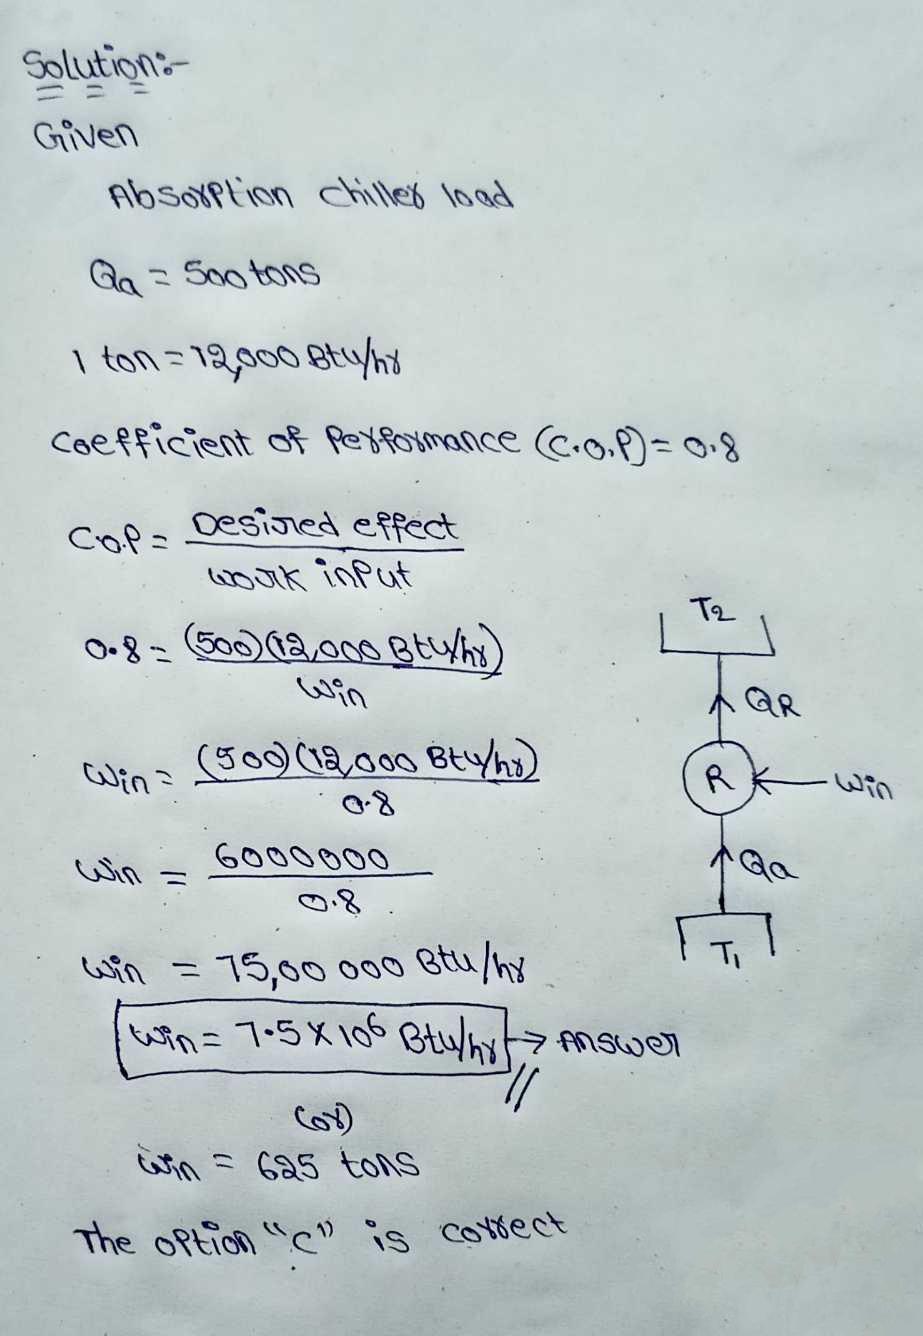 Solution:-
Given
Absorption chiller load
Qa = 500 tons
1 ton = 12,000 Btu/hr
Coefficient of Performance (C.O.P) = 0.8
C.O.P = Desired effect
work input
0.8 = (500)(12,000 Btu/hr)
Win
Win = (500)(12,000 Btu/hr)
0.8
Win = 6000000
0.8
Win = 75,00 000 Btu/hr
Win = 7.5 X 10⁶ Btu/hr → Answer
(or)
Win = 625 tons
The option "C" is correct
T2
QR
R
Win
Qa
T1